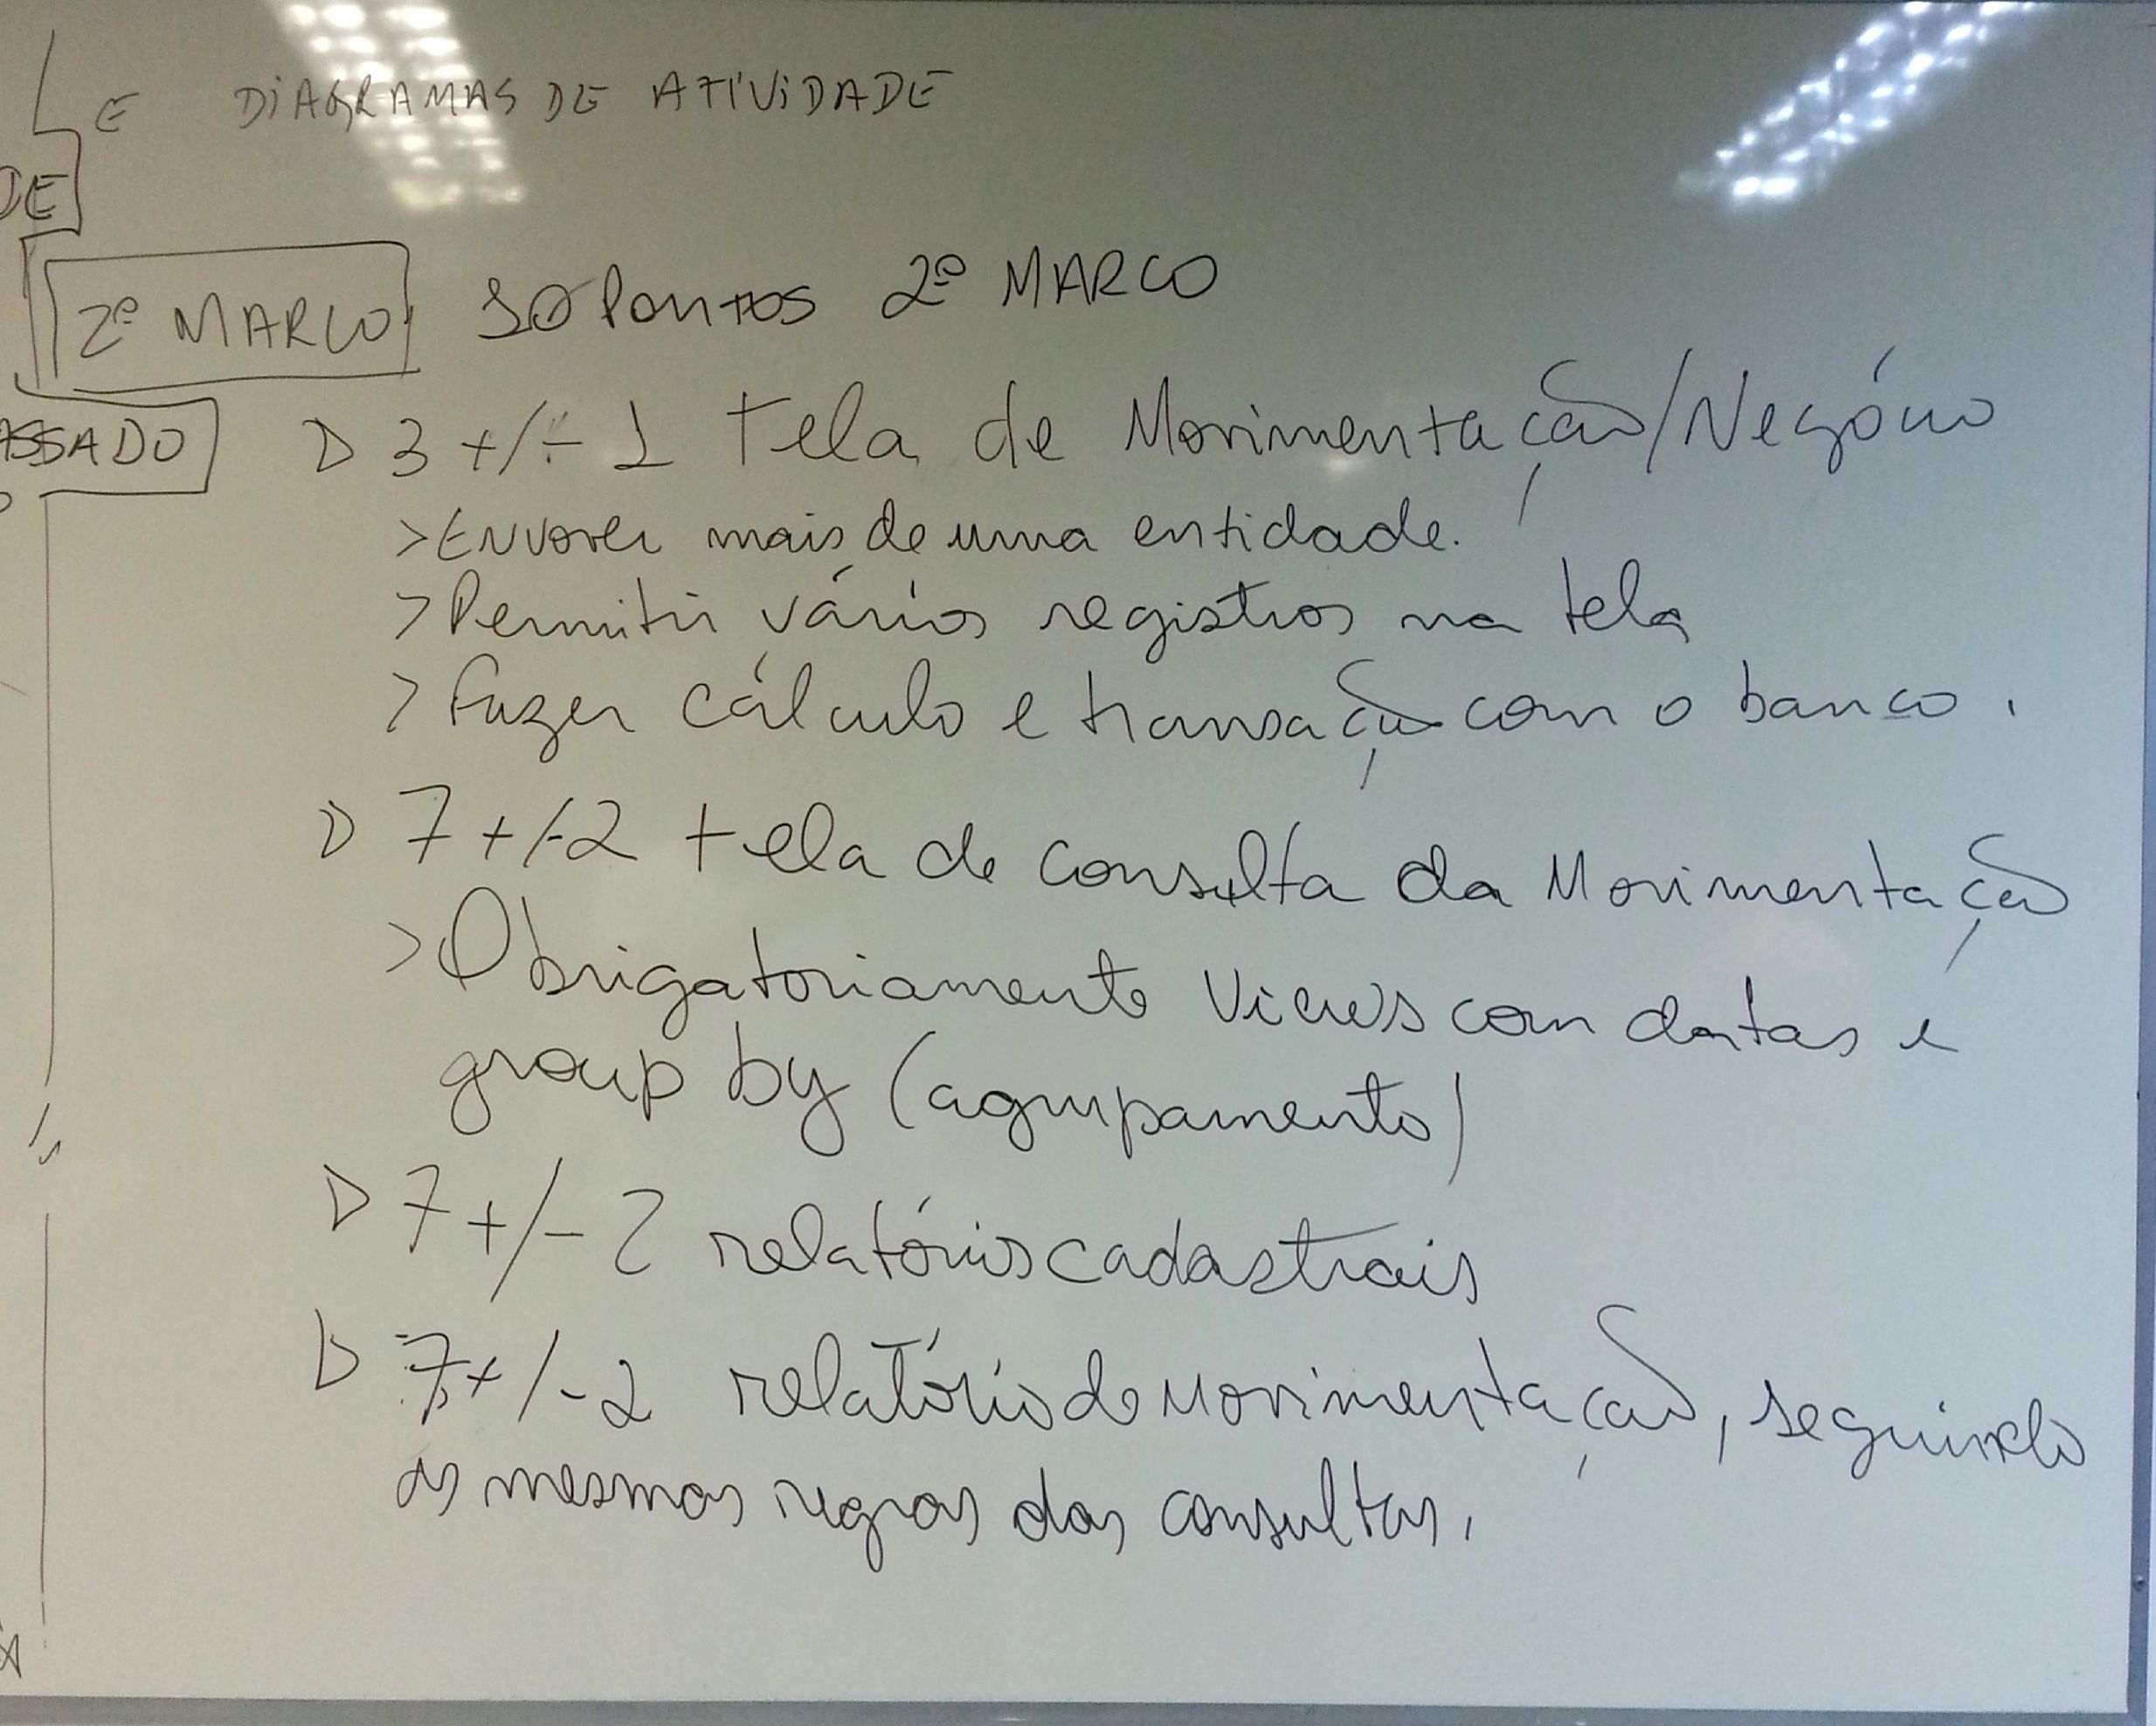 E DIAGRAMAS DE ATIVIDADE
DE
2º MARCO 10 Pontos 2º MARCO
ASSADO
▷ 3 +/- 1 tela de Movimentação/Negócio
> Envover mais de uma entidade.
> Permitir vários registros na tela
> Fazer cálculo e transação com o banco.
▷ 7 +/-2 tela de consulta da Movimentação
> Obrigatoriamente Views com datas e
group by (agrupamento)
▷ 7 +/- 2 relatórios cadastrais
▷ 7 +/-2 relatório de movimentação, seguindo
as mesmas regras das consultas.